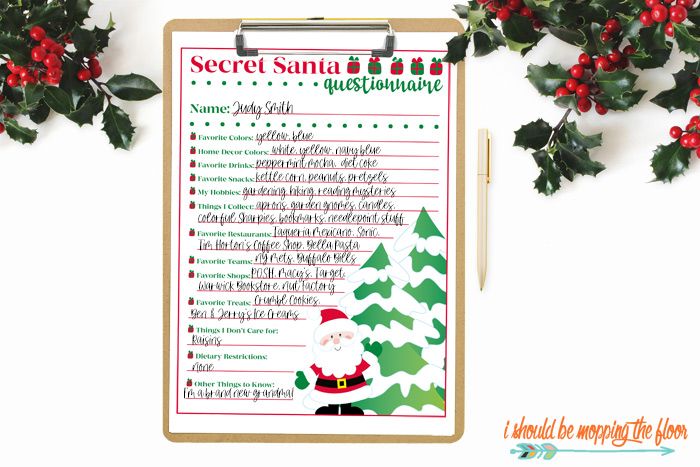 Secret Santa
questionnaire
Name: Judy Smith
Favorite Colors: yellow, blue
Home Decor Colors: white, yellow, navy blue
Favorite Drinks: peppermint mocha, diet coke
Favorite Snacks: kettle corn, peanuts, pretzels
My Hobbies: gardening, hiking, reading mysteries
Things I Collect: aprons, garden gnomes, candles,
colorful Sharpies, bookmarks, needlepoint stuff
Favorite Restaurants: Taqueria Mexicano, Sonic,
Tim Horton's Coffee Shop, Bella Pasta
Favorite Teams: NY Mets, Buffalo Bills
Favorite Shops: POSH, Macy's, Target,
Warwick Bookstore, Nut Factory
Favorite Treats: Crumbl Cookies,
Ben & Jerry's Ice Creams
Things I Don't Care for:
Raisins
Dietary Restrictions:
none
Other Things to Know:
I'm a brand new grandma!
i should be mopping the floor